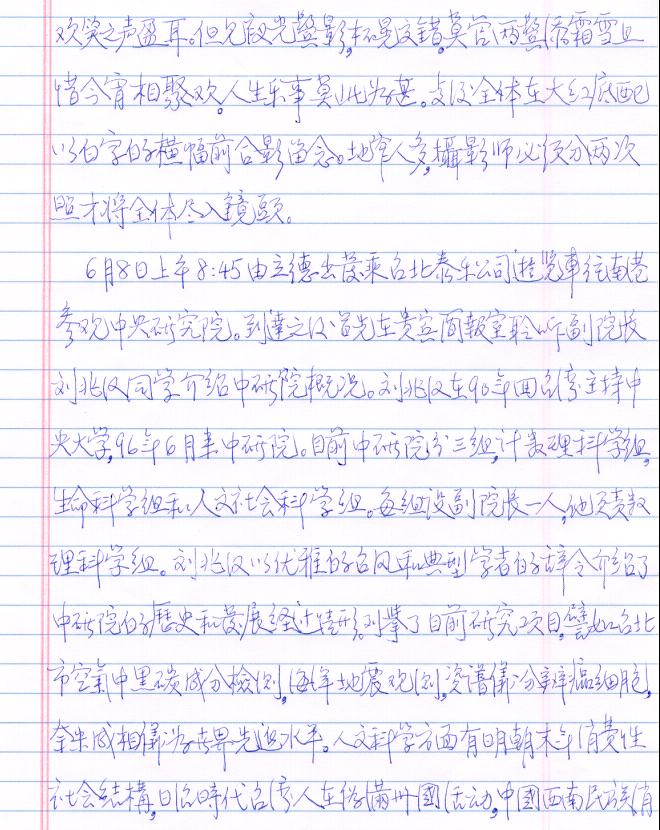 欢笑之声盈耳。但见觥光盤影,杯晃交错。莫管两鬓添霜雪,且
惜今宵相聚欢。人生乐事莫此为甚。之后全体在大红底配
以白字的横幅前合影留念。地窄人多,攝影师必须分两次
照才将全体尽入鏡頭。
6月8日上午8:45由立德出發乘台北泰乐公司遊览車往南港
参观中央研究院。到達之后首先在贵宾簡報室聆听副院长
刘兆汉同学介绍中研院概况。刘兆汉在90年回台湾主持中
央大学,96年6月来中研院。目前中研院分三组,计数理科学组,
生命科学组和人文社会科学组。每组设副院长一人,他负责数
理科学组。刘兆汉以优雅的台风和典型学者的辞令介绍了
中研院的歷史和發展经过情形。列举了目前研究项目,譬如台北
市空氣中黑碳成分檢測,海洋地震观測,资谱儀分辨癌细胞,
奈米成相儀为世界先进水平。人文科学方面有明朝末年消费性
社会结構,日治時代台湾人在伪满州國活动,中國西南民族消